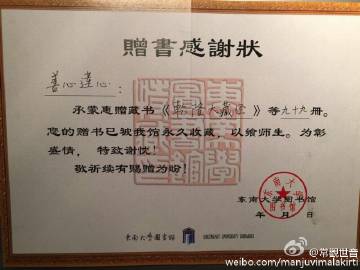 贈書感謝狀
善心達心：
承蒙惠赠藏书《乾隆大藏经》等九十九册。
您的赠书已被我馆永久收藏，以飨师生。为彰
盛情，特致谢忱！
敬祈续有赐赠为盼！
东南大学图书馆
年 月 日
東南大學圖書館 SOUTHEAST UNIVERSITY LIBRARIES
@常觀世音
weibo.com/manjuvimalakirti